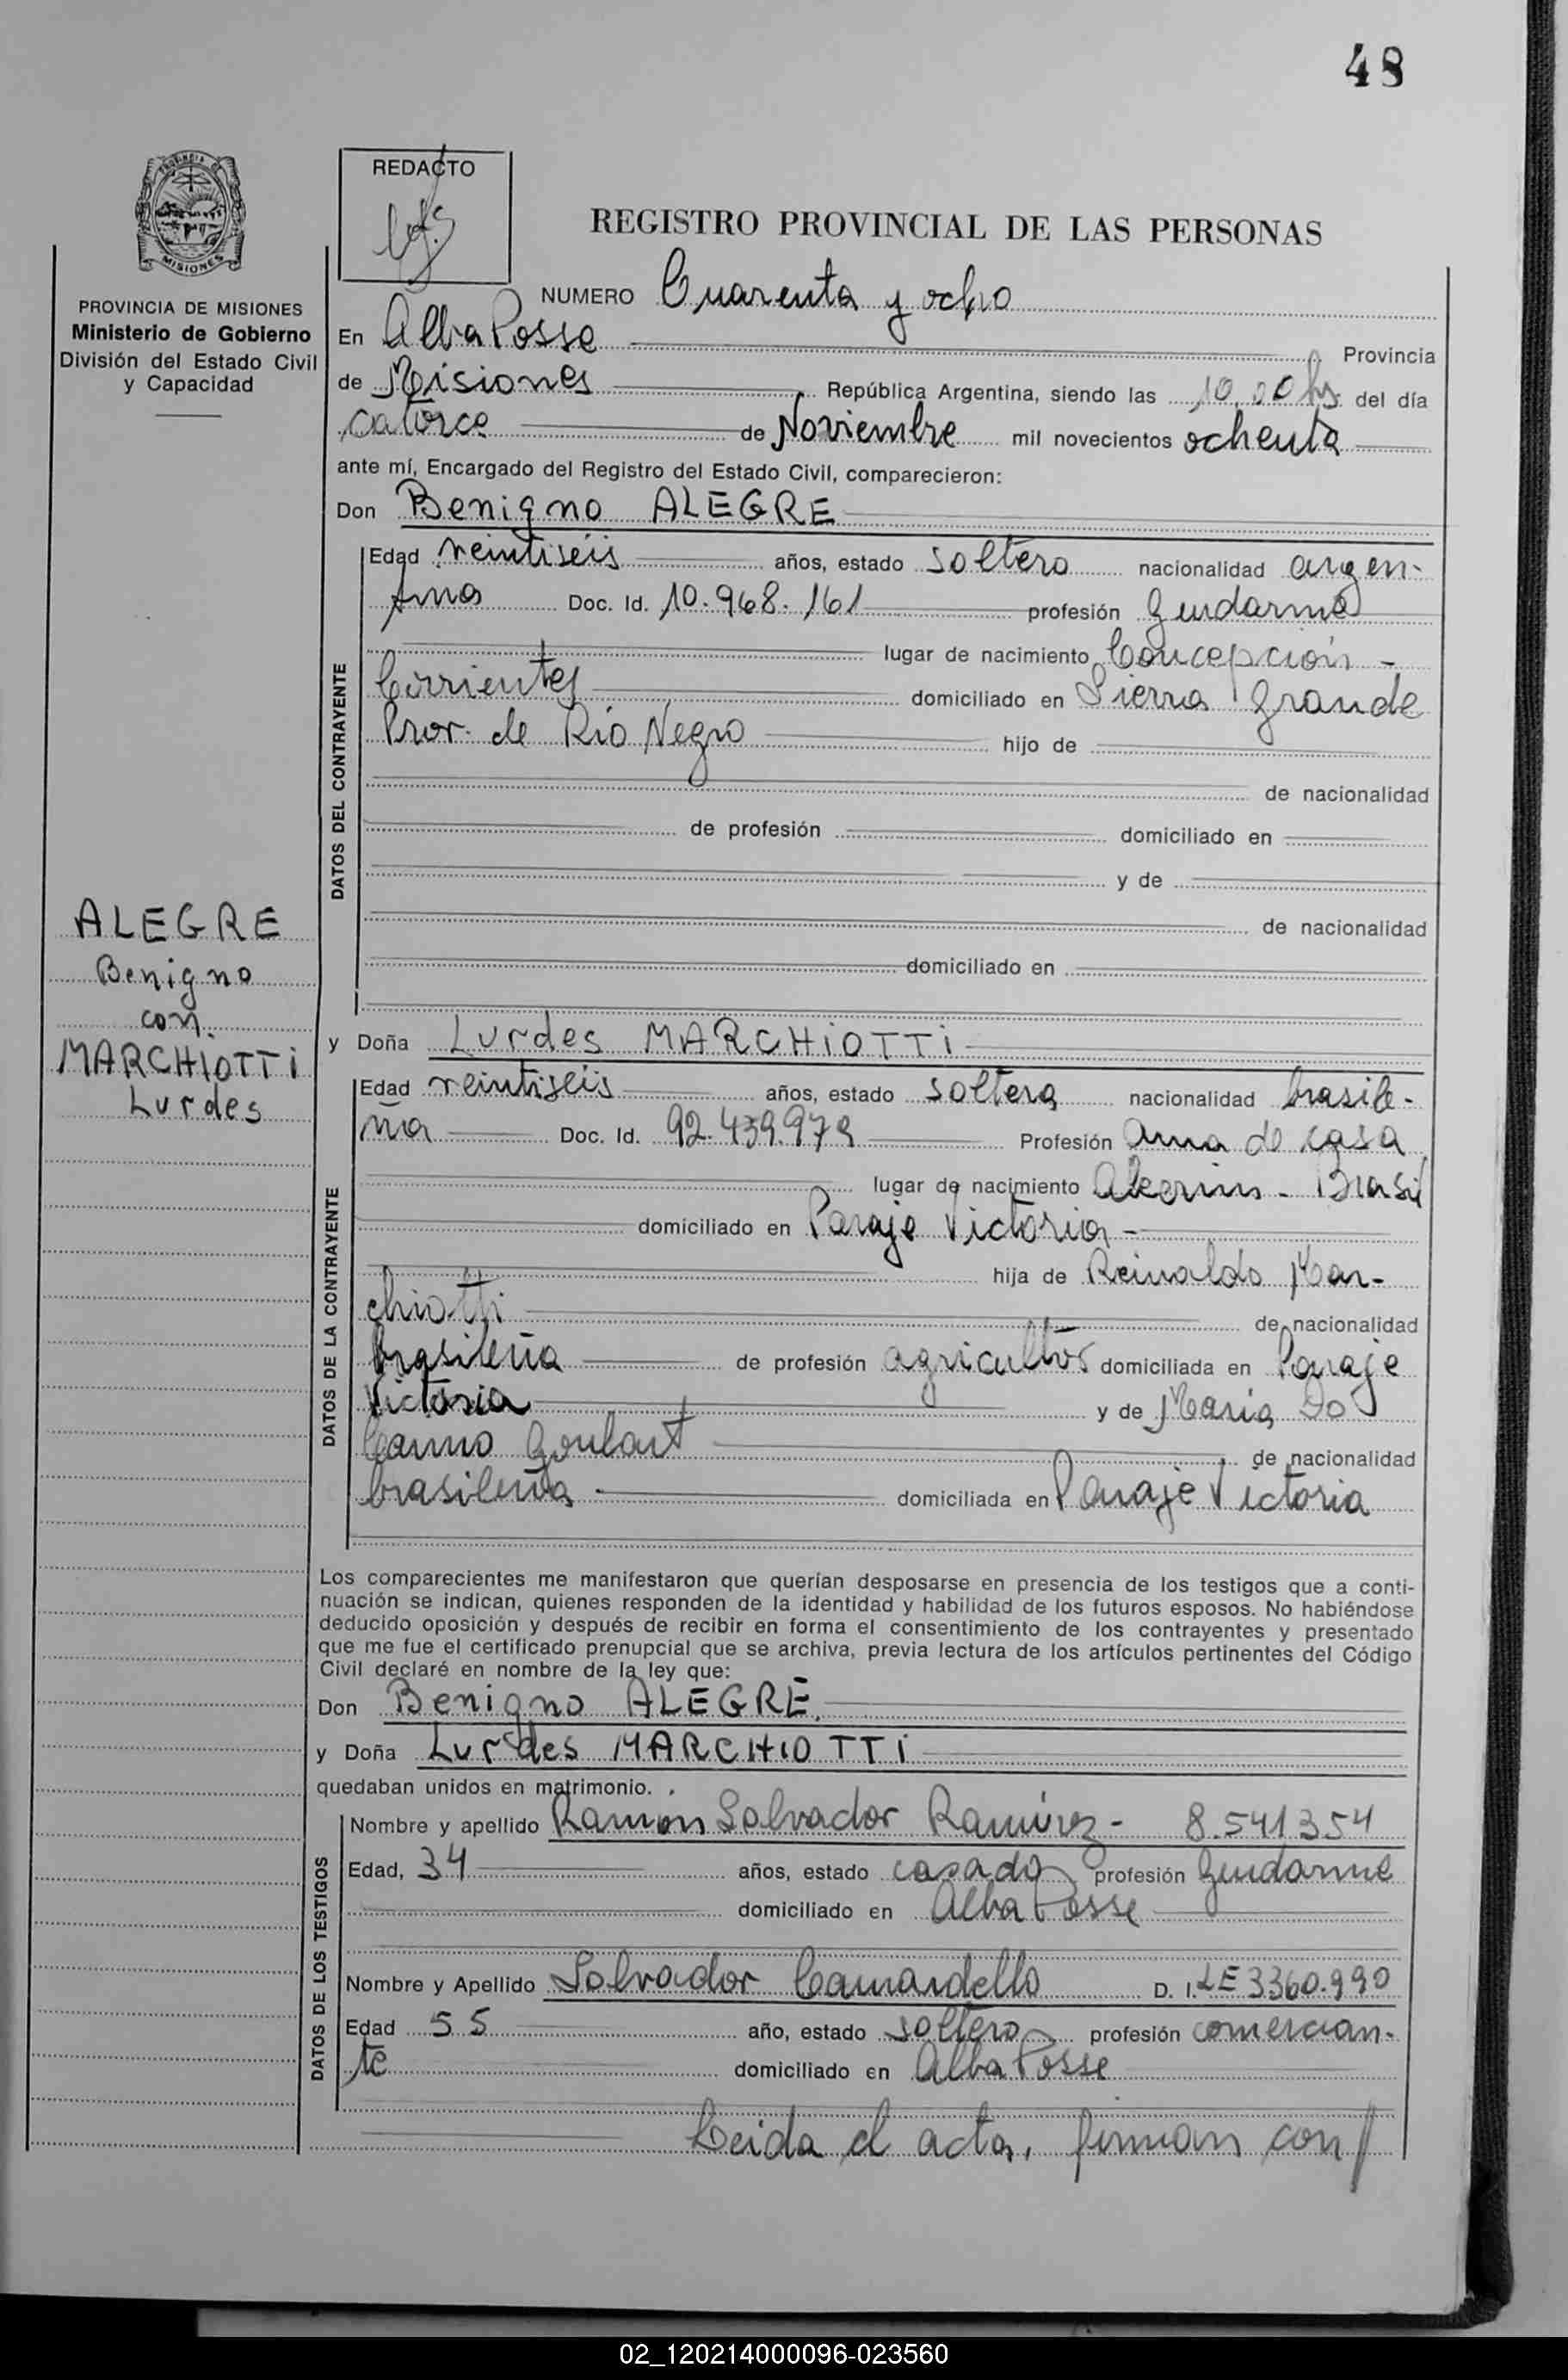 48
REDACTO
REGISTRO PROVINCIAL DE LAS PERSONAS
PROVINCIA DE MISIONES
Ministerio de Gobierno
División del Estado Civil
y Capacidad
NUMERO Cuarenta y ocho
En Alba Posse Provincia
de Misiones República Argentina, siendo las 10,00 hs. del día
catorce de Noviembre mil novecientos ochenta
ante mí, Encargado del Registro del Estado Civil, comparecieron:
Don Benigno ALEGRE
DATOS DEL CONTRAYENTE
Edad veintiseis años, estado soltero nacionalidad argen-
tina Doc. Id. 10.968.161 profesión Gendarme
lugar de nacimiento Concepción -
Corrientes domiciliado en Sierra Grande
Prov. de Río Negro hijo de
de nacionalidad
de profesión domiciliado en
y de
de nacionalidad
domiciliado en
ALEGRE
Benigno
con
MARCHIOTTi
Lurdes
y Doña Lurdes MARCHiOTTi
DATOS DE LA CONTRAYENTE
Edad veintiseis años, estado soltera nacionalidad brasile-
ña Doc. Id. 92.439.979 Profesión ama de casa
lugar de nacimiento Alecrim - Brasil
domiciliado en Paraje Victoria -
hija de Reinaldo Mar-
chiotti de nacionalidad
brasileña de profesión agricultor domiciliada en Paraje
Victoria y de Maria Do
Carmo Goulart de nacionalidad
brasileña domiciliada en Paraje Victoria
Los comparecientes me manifestaron que querían desposarse en presencia de los testigos que a conti-
nuación se indican, quienes responden de la identidad y habilidad de los futuros esposos. No habiéndose
deducido oposición y después de recibir en forma el consentimiento de los contrayentes y presentado
que me fue el certificado prenupcial que se archiva, previa lectura de los artículos pertinentes del Código
Civil declaré en nombre de la ley que:
Don Benigno ALEGRE.
y Doña Lurdes MARCHIOTTi
quedaban unidos en matrimonio.
DATOS DE LOS TESTIGOS
Nombre y apellido Ramón Salvador Ramírez - 8.541354
Edad, 34 años, estado casado profesión Gendarme
domiciliado en Alba Posse
Nombre y Apellido Salvador Camardello D. I. LE 3360.990
Edad 55 año, estado soltero profesión comercian-
te domiciliado en Alba Posse
Leida el acta, firman con
02_120214000096-023560